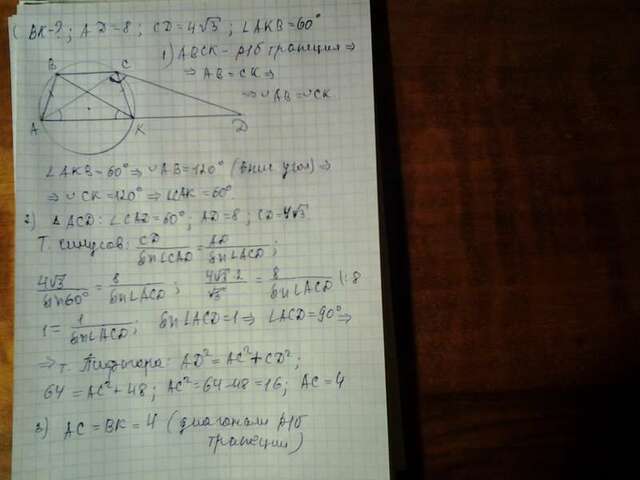 BK-?; AD=8; CD=4√3; ∠AKB=60°
1) ABCK - р/б трапеция ⇒
⇒ AB=CK ⇒
⇒ ◡AB=◡CK
B
C
A
K
D
∠AKB=60° ⇒ ◡AB=120° (впис угол) ⇒
⇒ ◡CK=120° ⇒ ∠CAK=60°
2) △ACD: ∠CAD=60°; AD=8; CD=4√3
Т. синусов: CD/sin∠CAD = AD/sin∠ACD;
4√3/sin60° = 8/sin∠ACD; 4√3·2/√3 = 8/sin∠ACD |:8
1 = 1/sin∠ACD; sin∠ACD=1 ⇒ ∠ACD=90° ⇒
⇒ т. Пифагора: AD²=AC²+CD²;
64=AC²+48; AC²=64-48=16; AC=4
3) AC=BK=4 (диагонали р/б
трапеции)